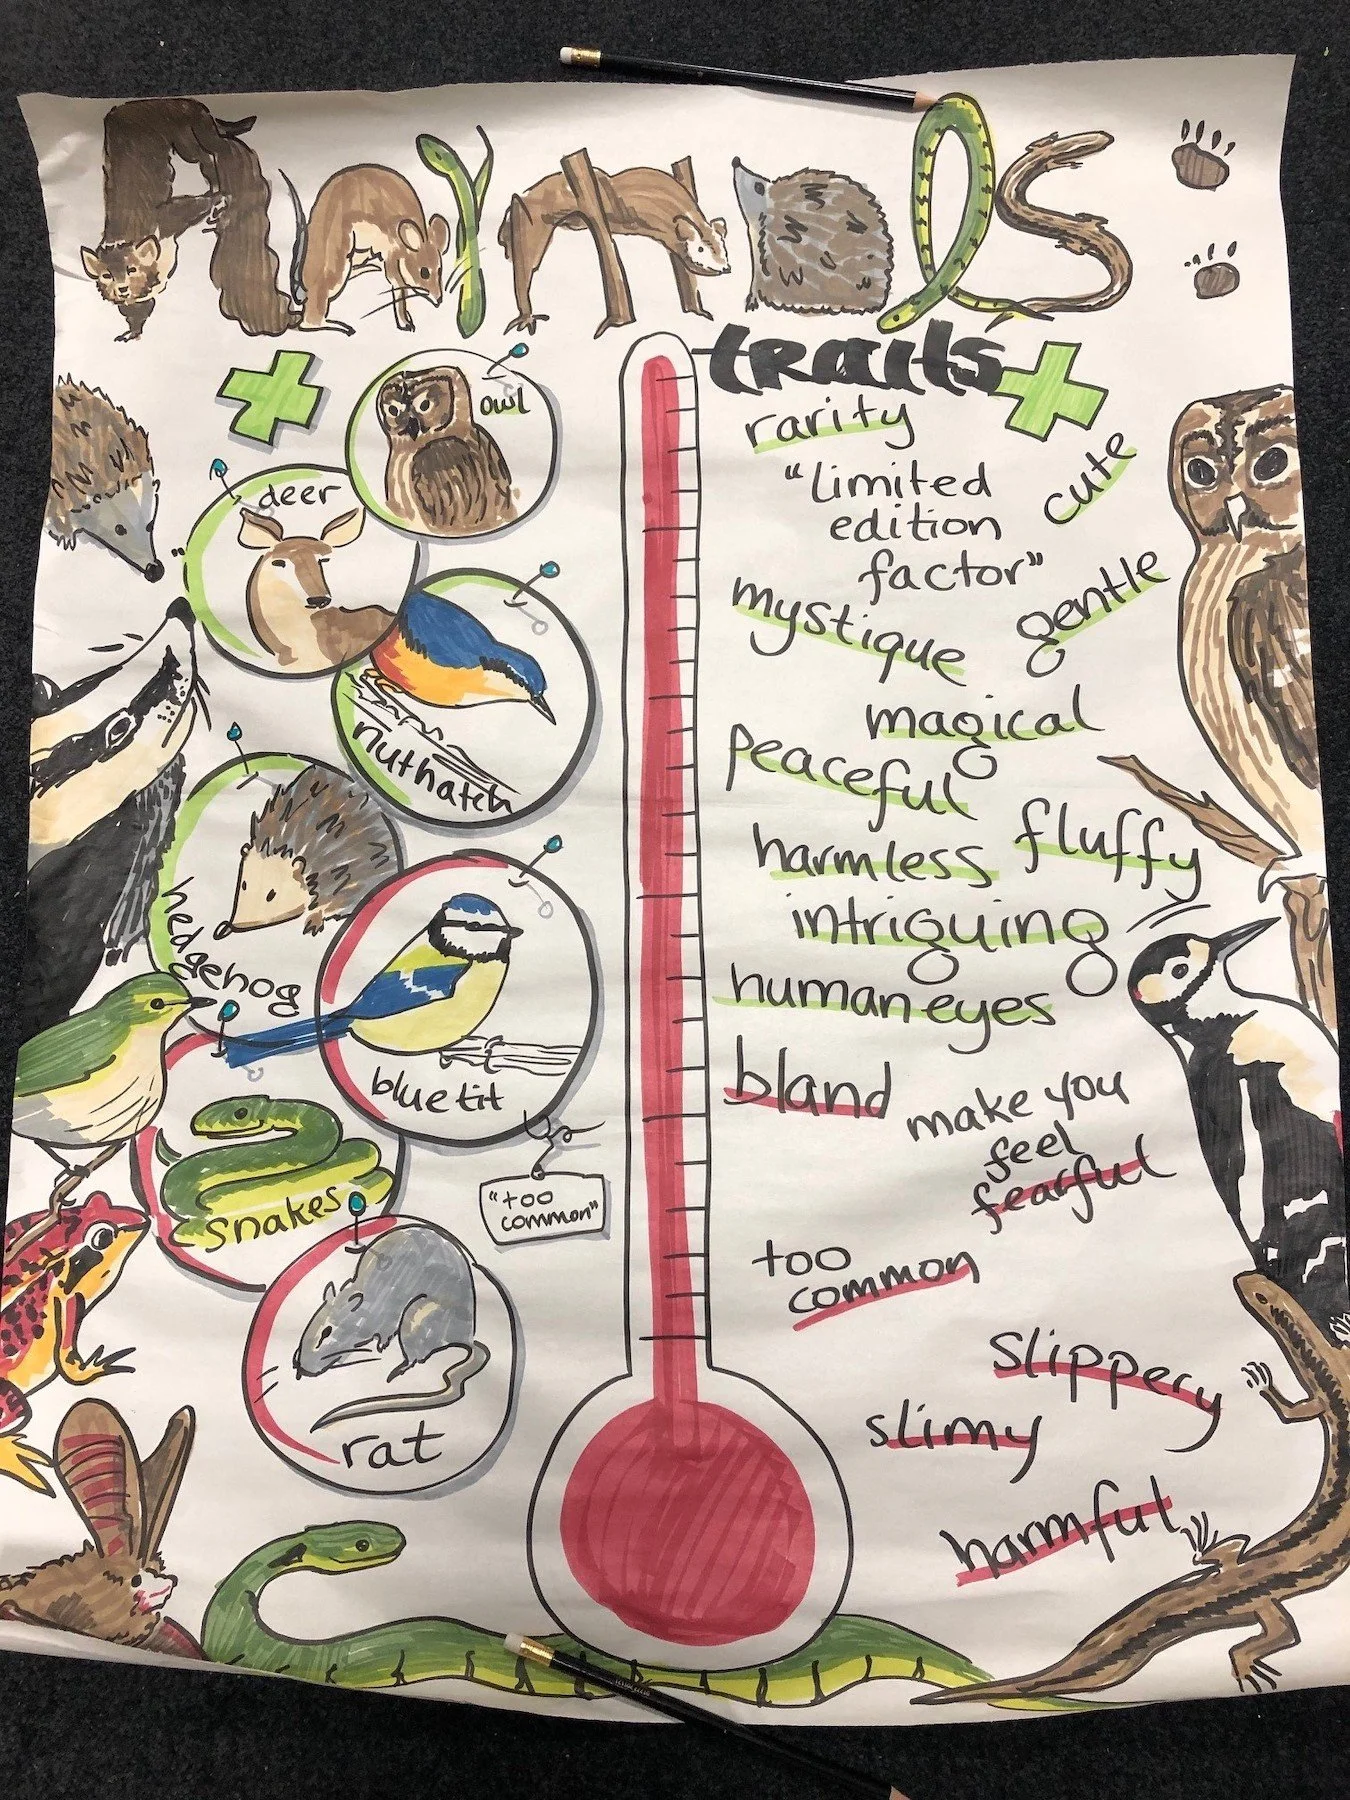 Animals
traits
owl
deer
nuthatch
hedgehog
blue tit
"too
common"
snakes
rat
rarity
"limited
edition
factor"
cute
mystique
gentle
magical
peaceful
harmless
fluffy
intriguing
human eyes
bland
make you
feel
fearful
too
common
slippery
slimy
harmful